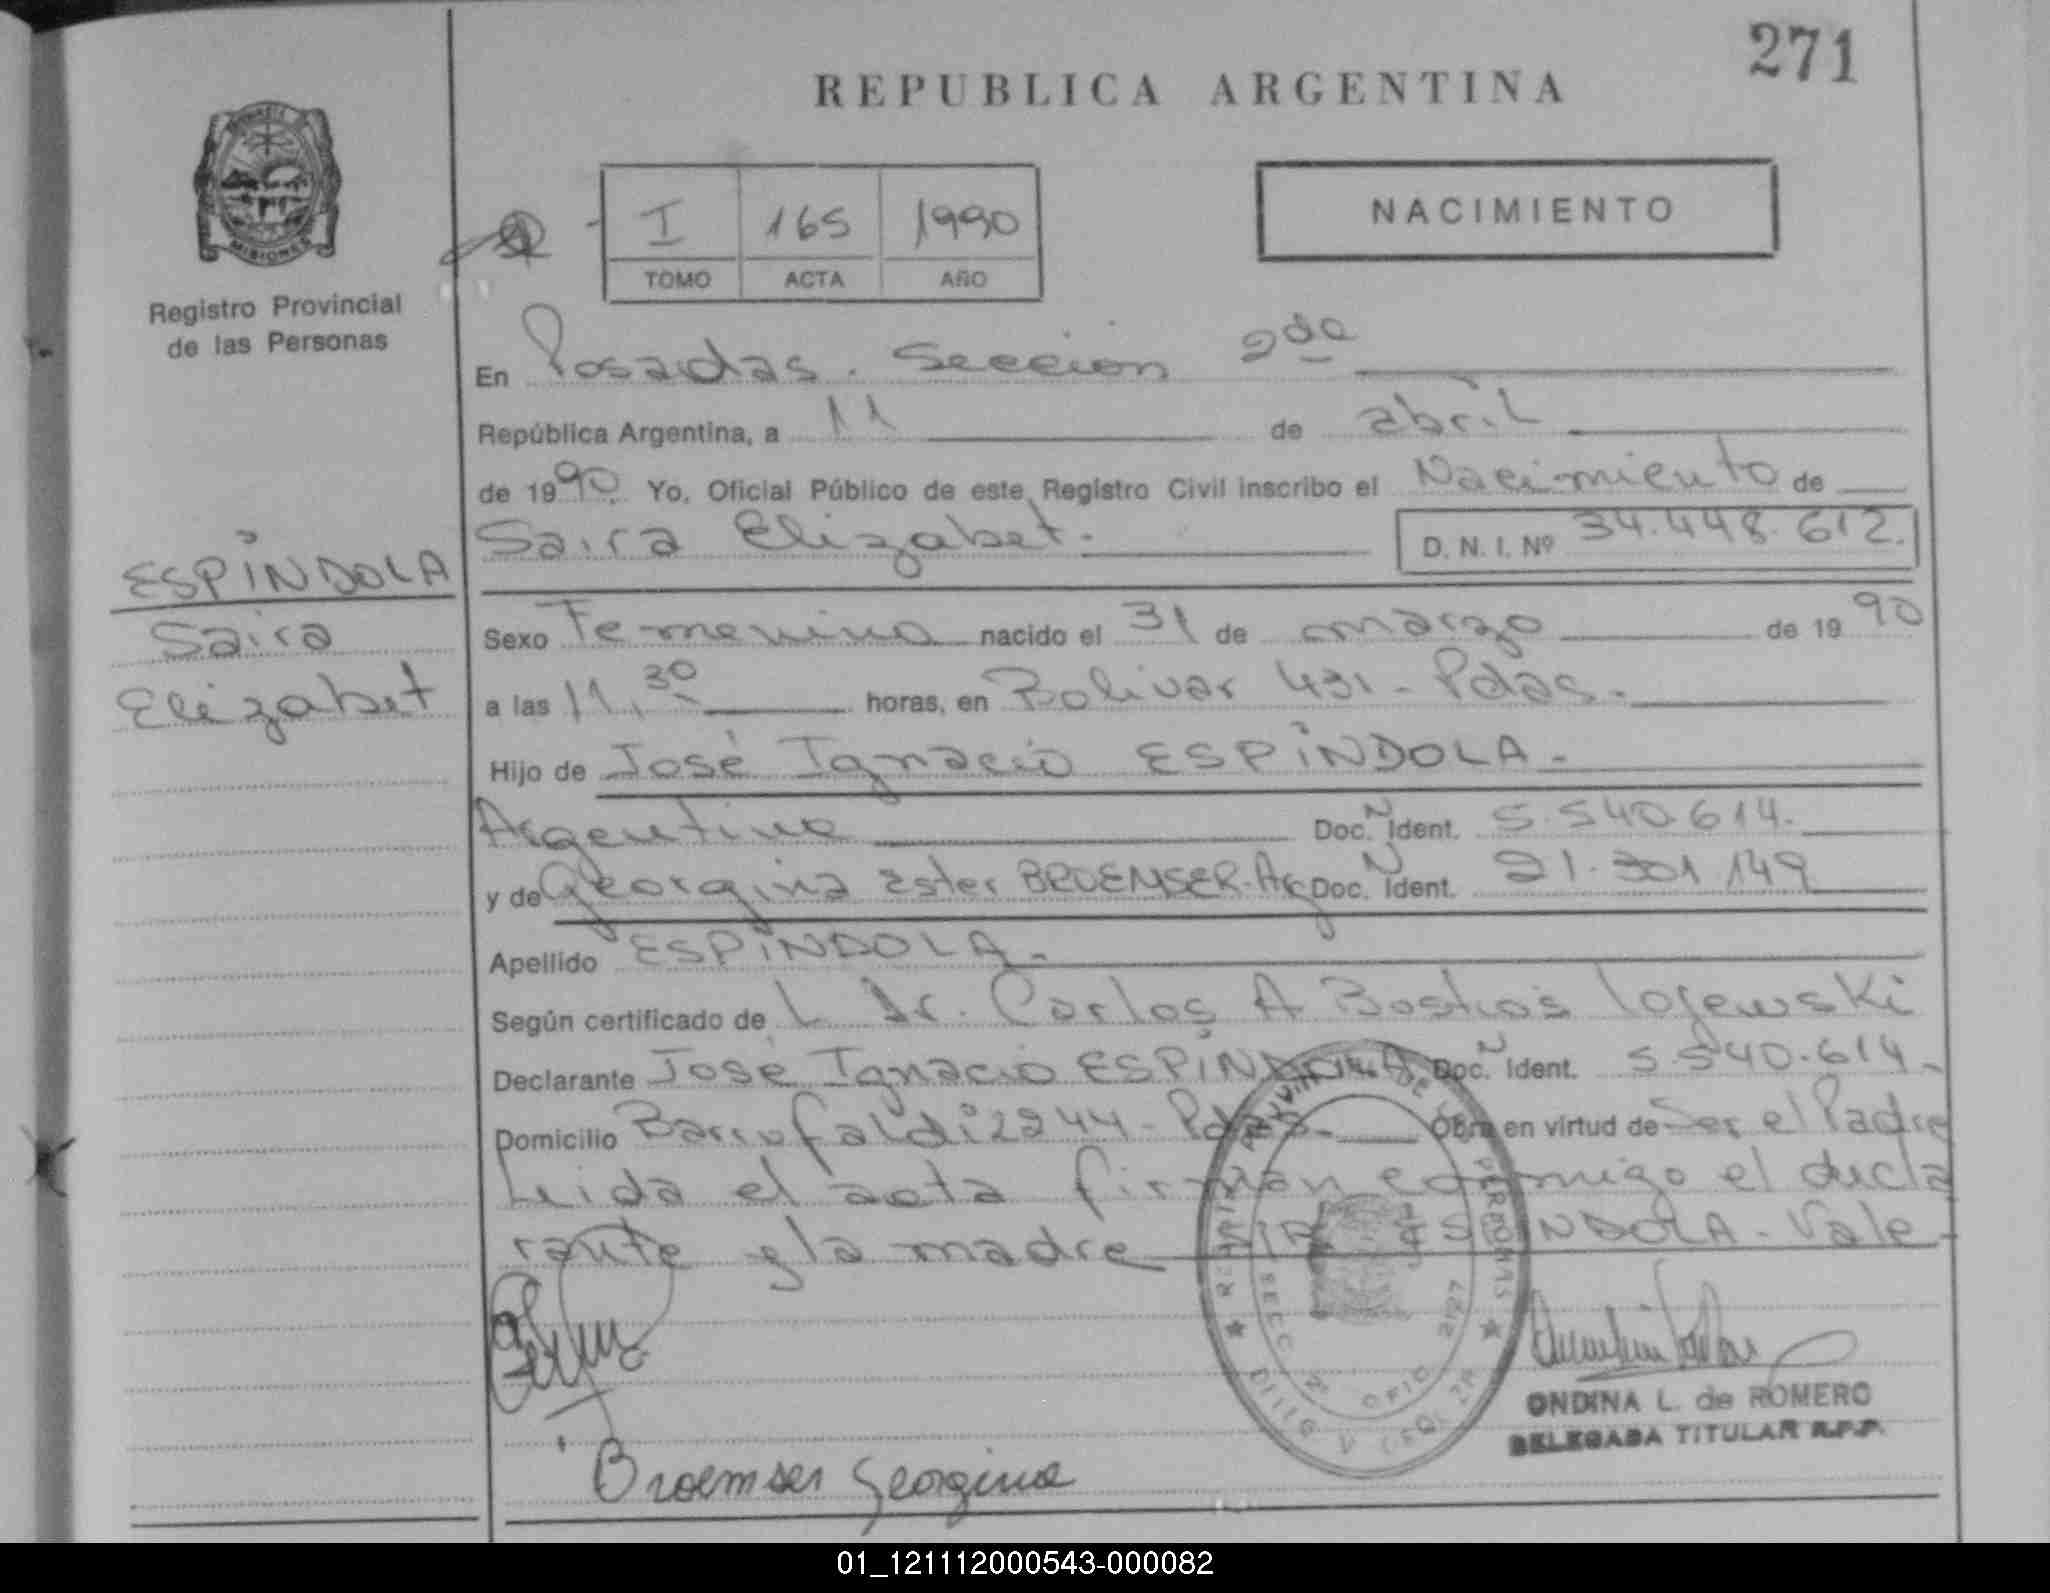 271
REPUBLICA ARGENTINA
MISIONES
Registro Provincial
de las Personas
I 165 1990
TOMO ACTA AÑO
NACIMIENTO
En Posadas. Sección 2da
República Argentina, a 11 de abril
de 1990 Yo, Oficial Público de este Registro Civil inscribo el Nacimiento de
Saira Elizabet. D. N. I. Nº 34.448.612.
ESPÍNDOLA
Saira
Elizabet
Sexo Femenino nacido el 31 de marzo de 1990
a las 11,30 horas, en Bolivar 431 - Pdas.
Hijo de José Ignacio ESPÍNDOLA.
Argentino Doc. N Ident. 5.540.614.
y de Georgina Ester BROEMSER. Arg Doc. N Ident. 21.301.149
Apellido ESPÍNDOLA.
Según certificado de L Dr. Carlos A
Declarante José Ignacio ESPÍNDOLA Doc. N Ident. 5.540.614.
Domicilio Barrufaldi 2244 - Pdas. Obra en virtud de Ser el Padre
Leida el acta firman conmigo el decla
rante y la madre ESPINDOLA - Vale
Broemser Georgina
ONDINA L. de ROMERO
DELEGADA TITULAR R.P.P.
01_121112000543-000082